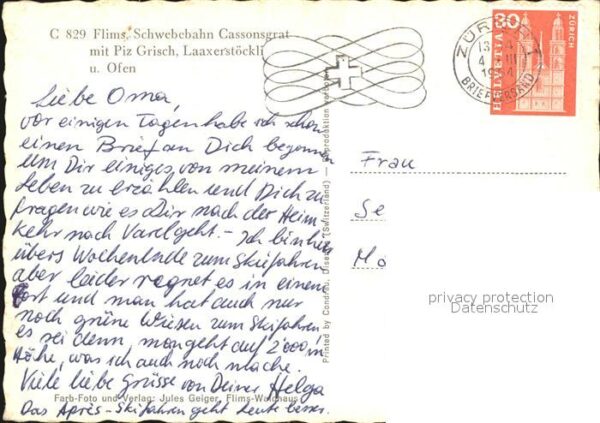 C 829 Flims, Schwebebahn Cassonsgrat
mit Piz Grisch, Laaxerstöckli
u. Ofen
Liebe Oma,
vor einigen Tagen habe ich schon
einen Brief an Dich begonnen
um Dir einiges von meinem
Leben zu erzählen und Dich zu
fragen wie es Dir nach der Heim-
kehr nach Varel geht. - Ich bin hier
übers Wochenende zum Skifahren
aber leider regnet es in einem
fort und man hat auch nur
noch grüne Wiesen zum Skifahren
es sei denn, man geht auf 2'000 m
Höhe, was ich auch noch mache.
Viele liebe Grüsse von Deiner Helga
Das Après-Skifahren geht heute besser.
Farb-Foto und Verlag: Jules Geiger, Flims-Waldhaus
Printed by Condrau, Disentis (Switzerland) - Reproduktion
ZÜRICH 1
4 III
BRIEFVERSAND
30
HELVETIA
ZÜRICH
Frau
Se
Mo
privacy protection
Datenschutz